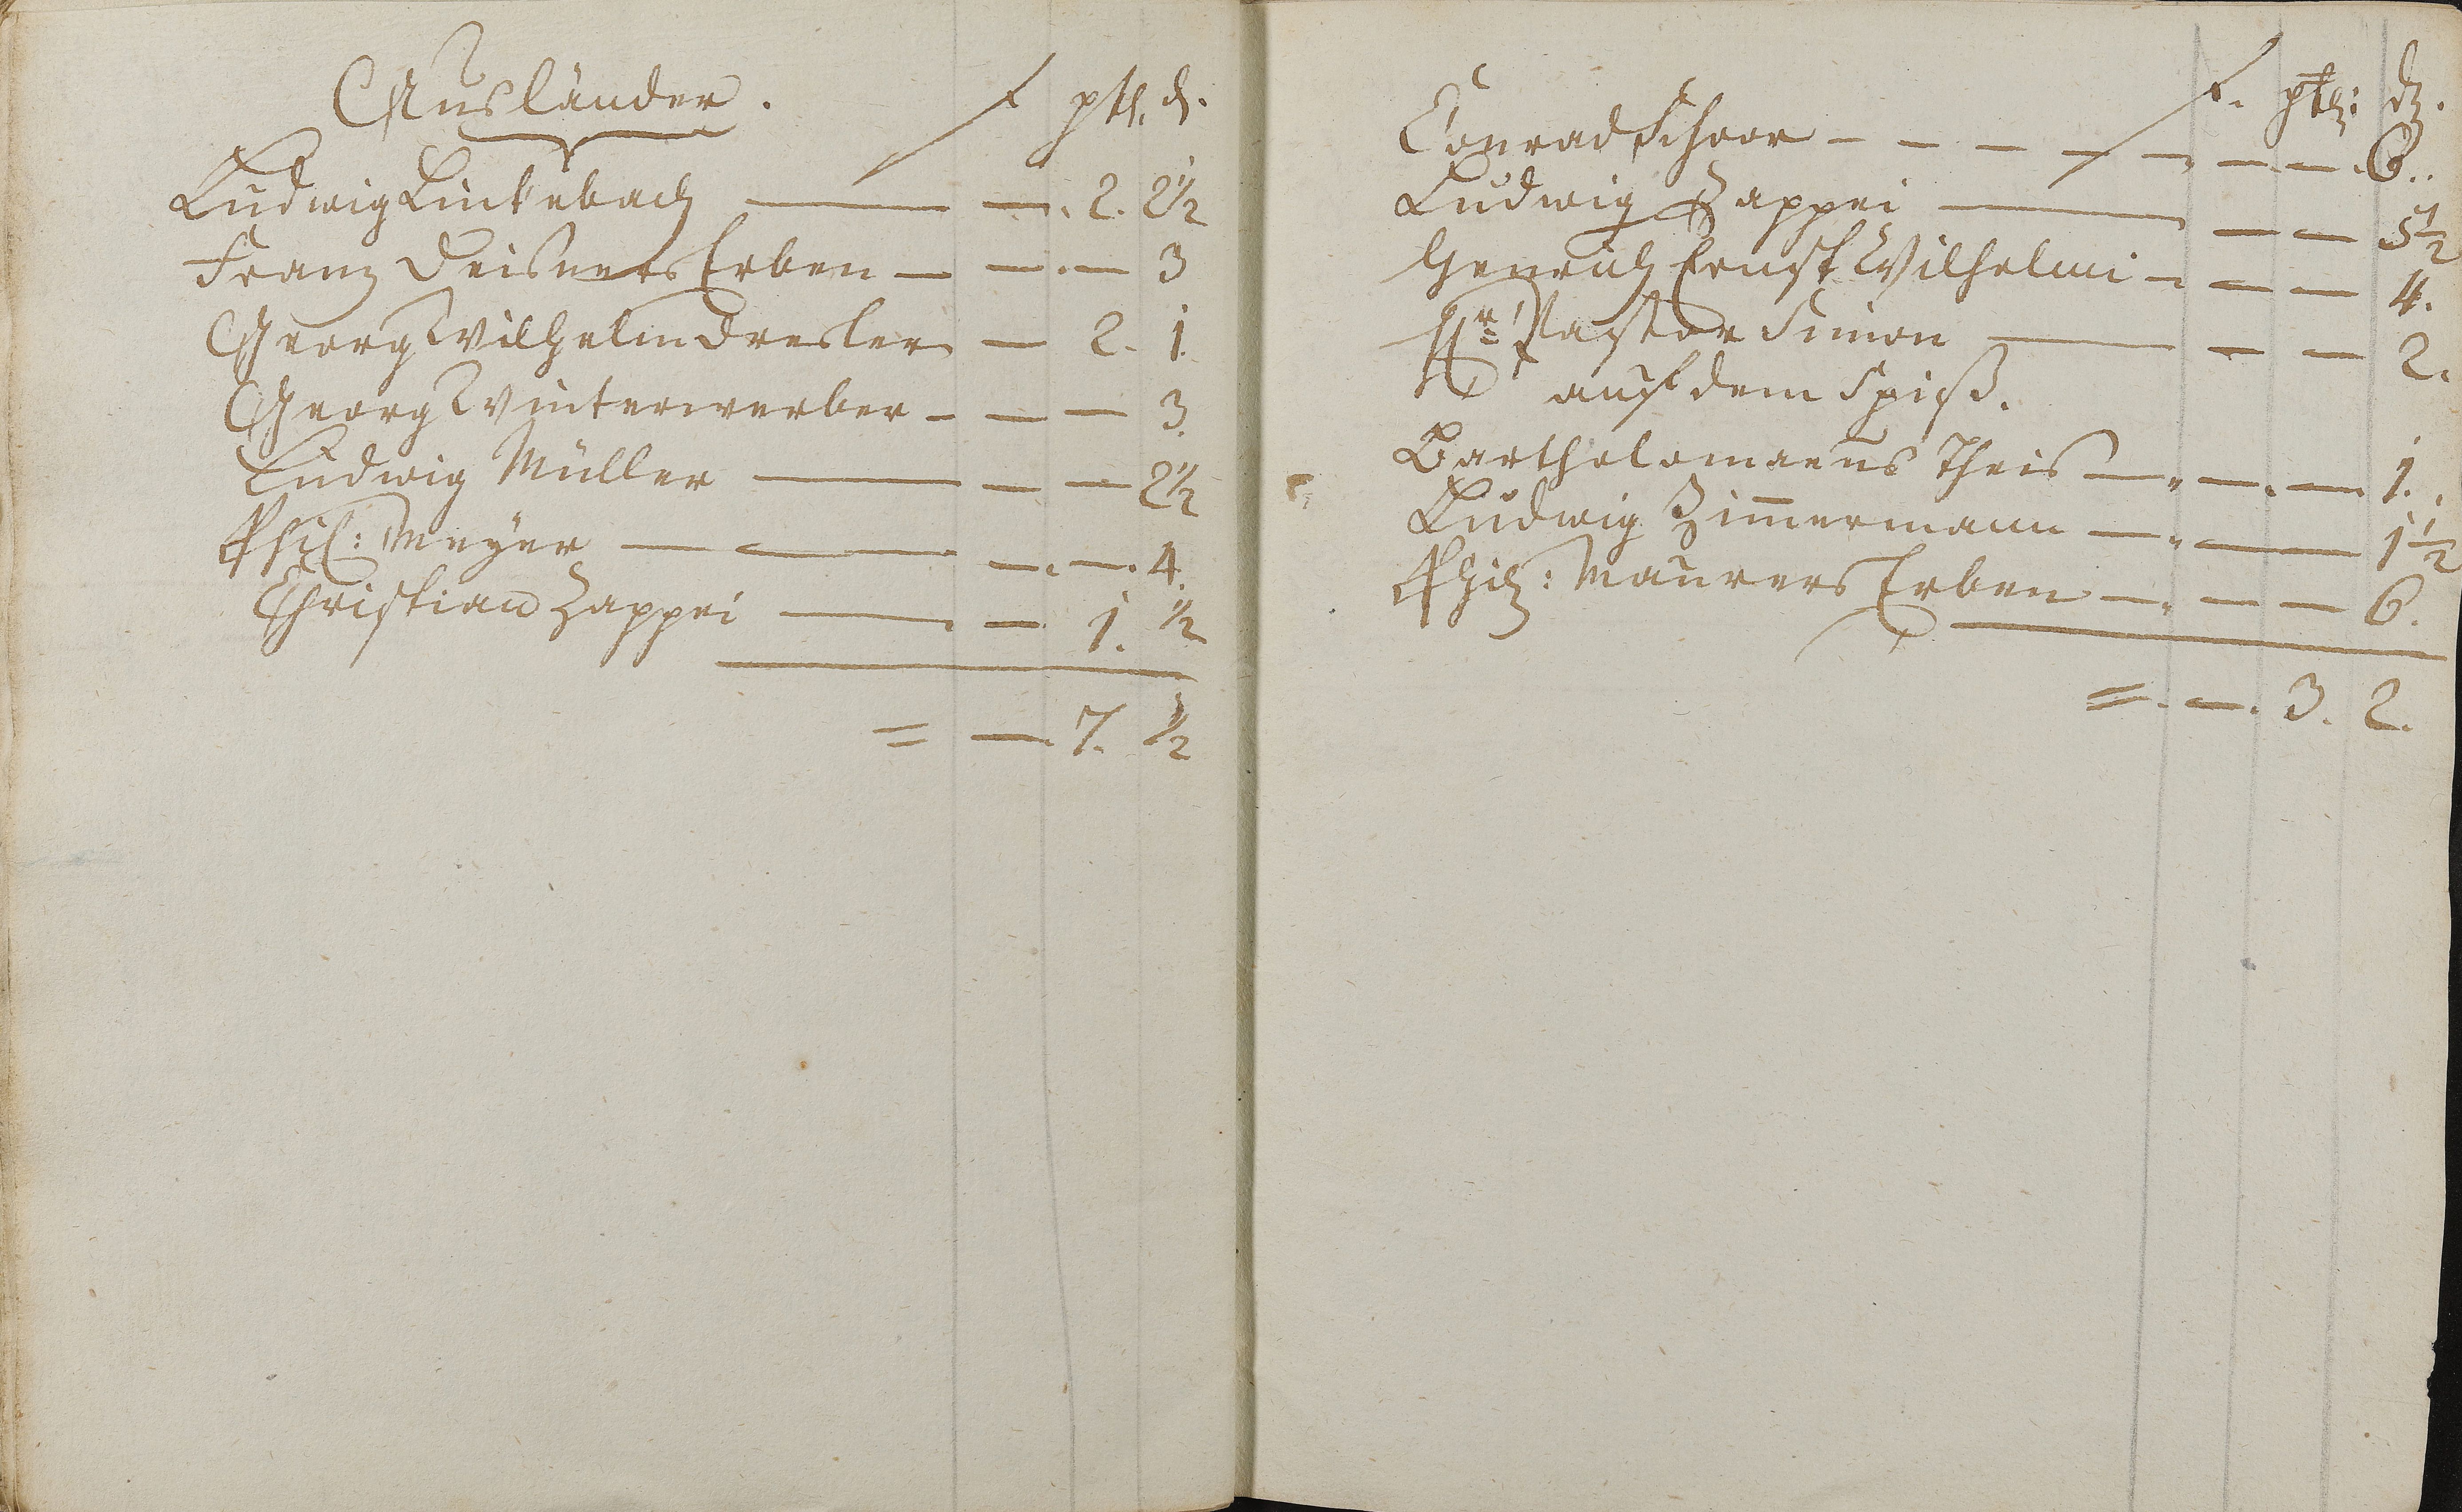 Ausländer.
f ptl. d.
Ludwig Linkebach — — . 2. 2½
Franz Deisners Erben — — . — 3
Georg Wilhelm Dresler — 2. 1.
Georg Winterwerber - — — 3.
Ludwig Müller — — — 2½
Phil: Meyer — — — . — . 4.
Christian Zappei — — 1. ½
= — . 7. ½
f. ptl: d.
Conrad Schoor - - - - - — — . 6..
Ludwig Zappei — — — 5½
Henrich Ernst Wilhelmi - — — 4.
Hr. Pastor Simon — — — 2.
auf dem Spieß.
Bartholomaeus Theis — — . — 1.
Ludwig Zimmermann — — 1½
Phil: Maurers Erben — — — 6.
= . — . 3. 2.